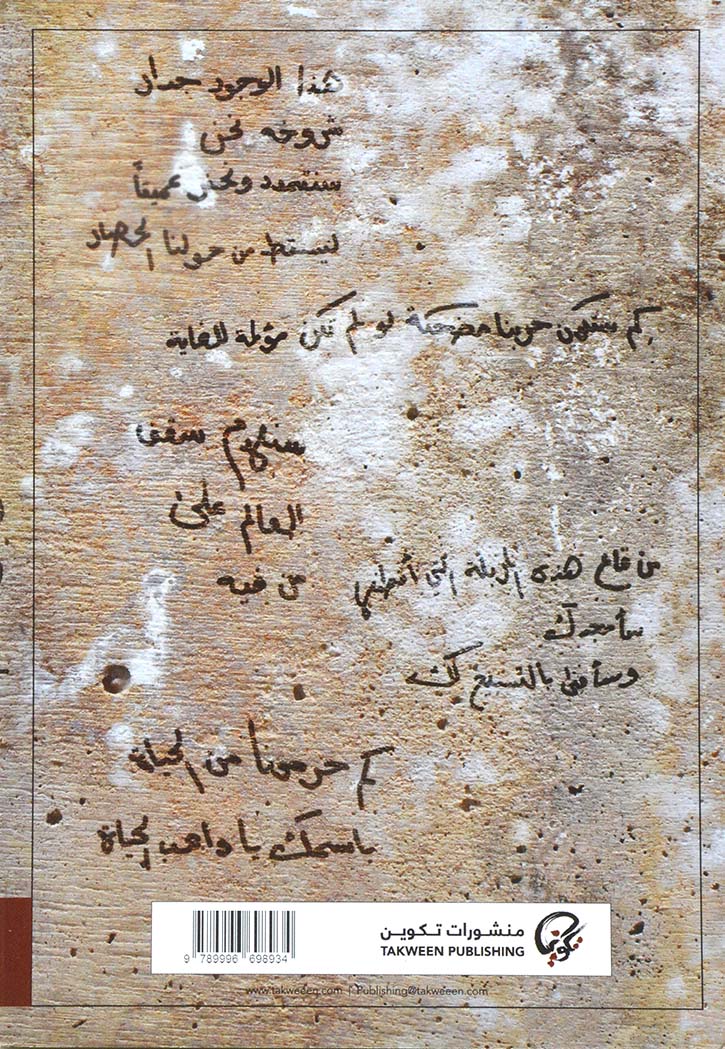 هذا الوجود جدار
شروخه نحن
سنتمدد ونحفر عميقاً
ليسقط من حولنا الحصار
كم ستكون حربنا مضحكة لو لم تكن مؤلمة للغاية
سنهدم سقف
العالم على
من فيه
من قاع هذه المزبلة التي أعطيتني
سأمجدك
وسأفنى بالتسبيح لك
كم حرمونا من الحياة
باسمك يا واهب الحياة
9 789996 698934
منشورات تكوين
TAKWEEN PUBLISHING
تكوين
www.takweeen.com | Publishing@takweeen.com